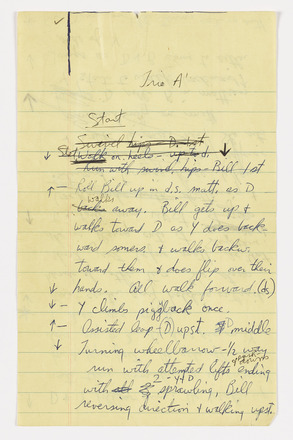 Trio A'
Start
Swivel hips - D. 1st
Slot Walk on heels - up to ds.
turn with swivel, hips - Bill 1st
Roll Bill up in d.s. matt, as D
walks away. Bill gets up &
walks toward D as Y does back-
ward somers. & walks backw.
toward them & does flip over their
hands. All walk forward. (ds)
Y climbs piggback once.
Assisted leap (D) upst. D middle
Turning wheelbarrow - 1/2 way
run with attempted lifts ending
with 2 - Y+D sprawling, Bill
reversing direction & walking upst.